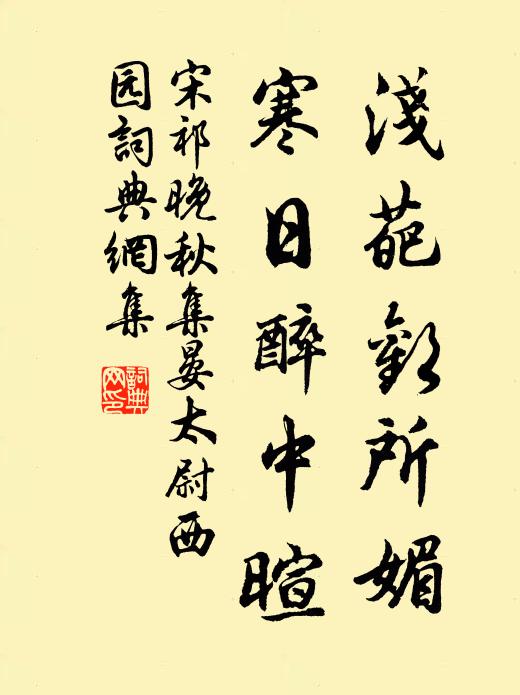 淺葩歡所媚
寒日醉中暄
宋祁晚秋集晏太尉西
园詞典網集
詞典網印